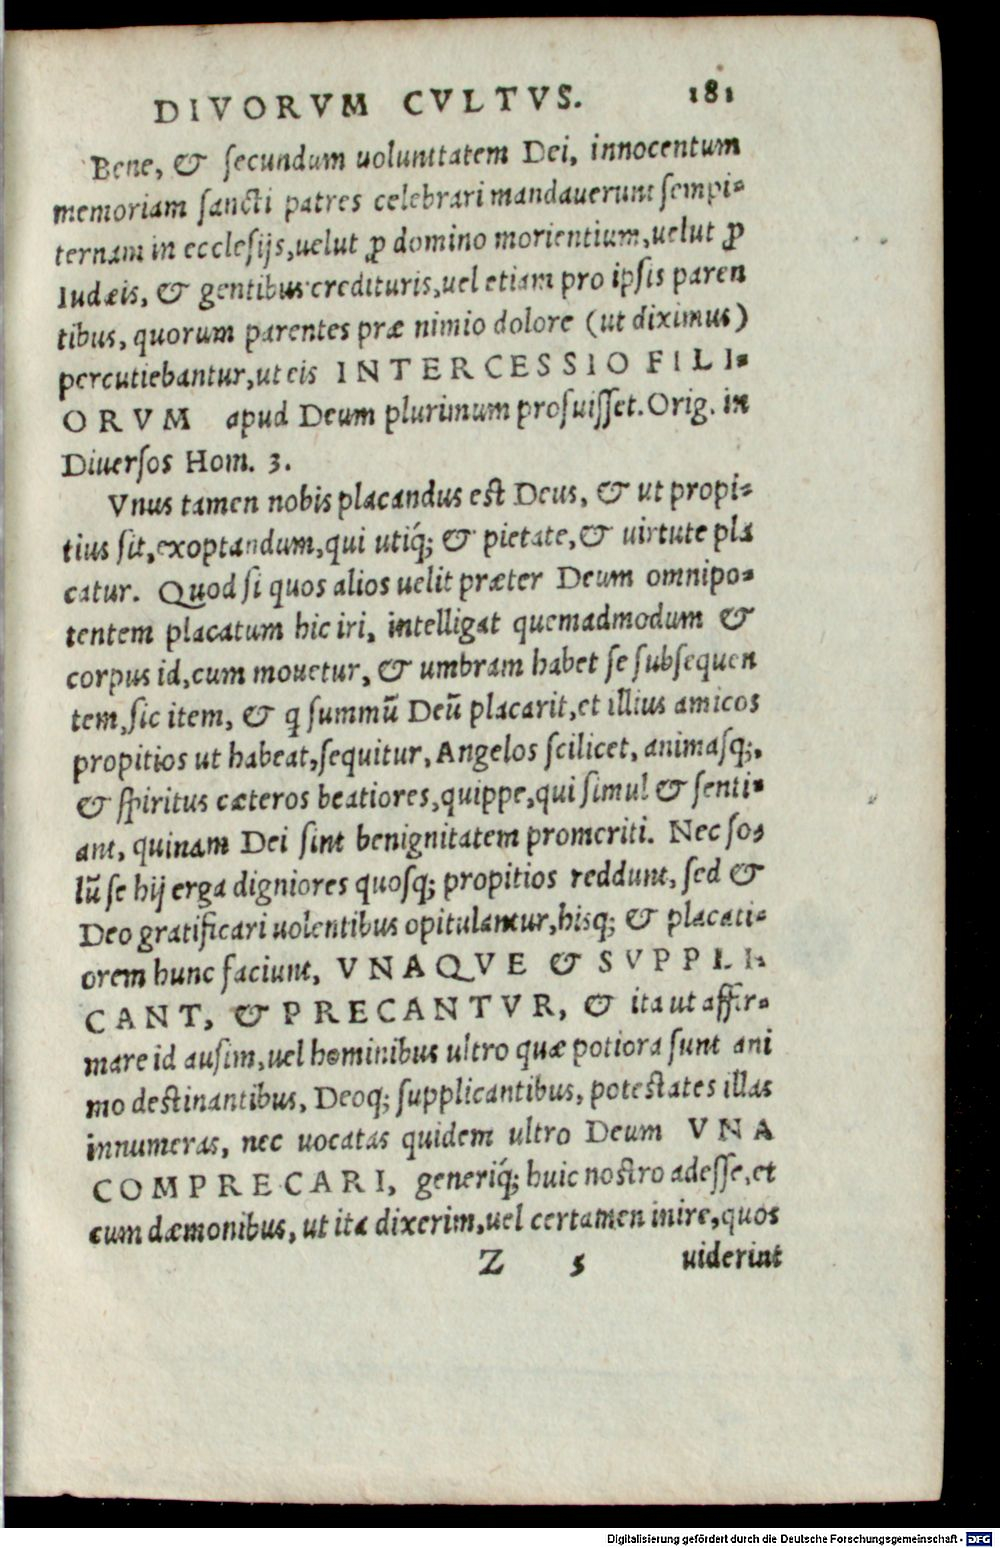 DIVORVM CVLTVS. 181
Bene, & secundum uoluntatem Dei, innocentum
memoriam sancti patres celebrari mandauerunt sempi-
ternam in ecclesijs, uelut ꝓ domino morientium, uelut ꝓ
Iudæis, & gentibus credituris, uel etiam pro ipsis paren
tibus, quorum parentes præ nimio dolore (ut diximus)
percutiebantur, ut eis INTERCESSIO FILI-
ORVM apud Deum plurimum profuisset. Orig. in
Diuersos Hom. 3.
Vnus tamen nobis placandus est Deus, & ut propi-
tius sit, exoptandum, qui utiq́; & pietate, & uirtute pla
catur. Quod si quos alios uelit præter Deum omnipo-
tentem placatum hic iri, intelligat quemadmodum &
corpus id, cum mouetur, & umbram habet se subsequen
tem, sic item, & q summũ Deũ placarit, et illius amicos
propitios ut habeat, sequitur, Angelos scilicet, animasq;,
& spiritus cæteros beatiores, quippe, qui simul & senti-
ant, quinam Dei sint benignitatem promeriti. Nec so-
lũ se hij erga digniores quosq; propitios reddunt, sed &
Deo gratificari uolentibus opitulantur, hisq; & placati-
orem hunc faciunt, VNAQVE & SVPPLI-
CANT, & PRECANTVR, & ita ut affir-
mare id ausim, uel hominibus ultro quæ potiora sunt ani
mo destinantibus, Deoq; supplicantibus, potestates illas
innumeras, nec uocatas quidem ultro Deum VNA
COMPRECARI, generiq́; huic nostro adesse, et
cum dæmonibus, ut ita dixerim, uel certamen inire, quos
Z 5 uiderint
Digitalisierung gefördert durch die Deutsche Forschungsgemeinschaft - DFG